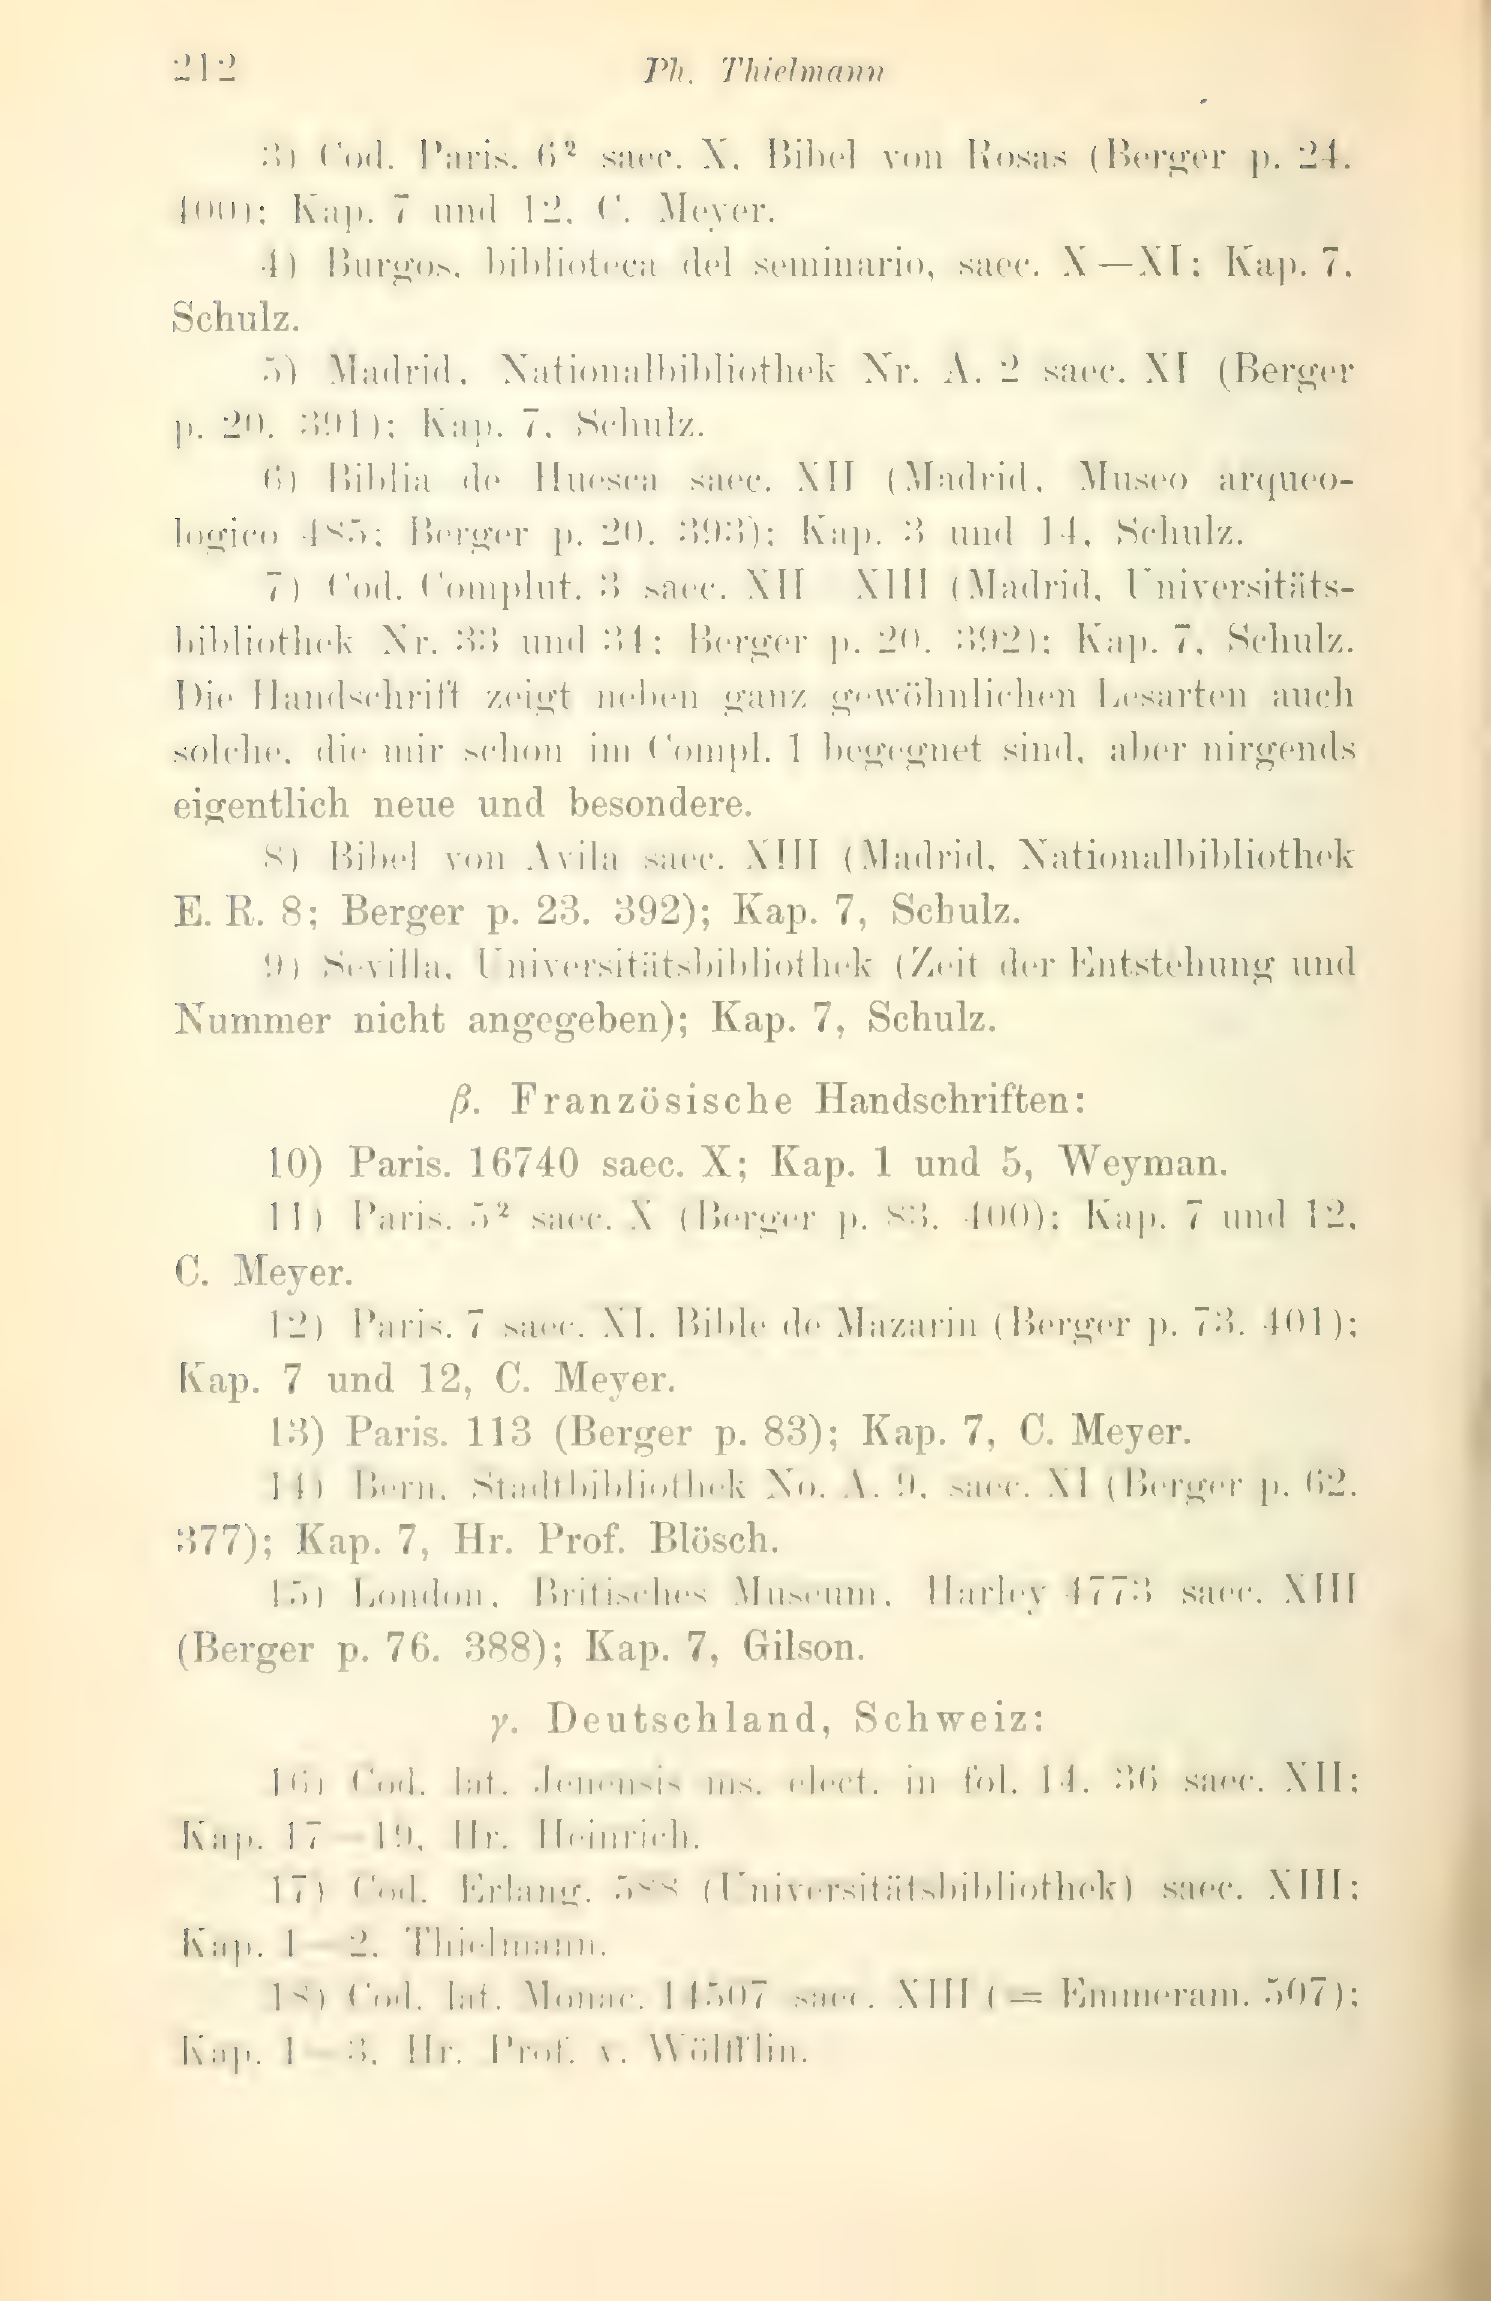 212 Ph. Thielmann
3) Cod. Paris. 6² saec. X, Bibel von Rosas (Berger p. 24.
400); Kap. 7 und 12, C. Meyer.
4) Burgos, biblioteca del seminario, saec. X—XI; Kap. 7,
Schulz.
5) Madrid, Nationalbibliothek Nr. A. 2 saec. XI (Berger
p. 20. 391); Kap. 7, Schulz.
6) Biblia de Huesca saec. XII (Madrid, Museo arqueo-
logico 485; Berger p. 20. 393); Kap. 3 und 14, Schulz.
7) Cod. Complut. 3 saec. XII—XIII (Madrid, Universitäts-
bibliothek Nr. 33 und 34; Berger p. 20. 392); Kap. 7, Schulz.
Die Handschrift zeigt neben ganz gewöhnlichen Lesarten auch
solche, die mir schon im Compl. 1 begegnet sind, aber nirgends
eigentlich neue und besondere.
8) Bibel von Avila saec. XIII (Madrid, Nationalbibliothek
E. R. 8; Berger p. 23. 392); Kap. 7, Schulz.
9) Sevilla, Universitätsbibliothek (Zeit der Entstehung und
Nummer nicht angegeben); Kap. 7, Schulz.
β. Französische Handschriften:
10) Paris. 16740 saec. X; Kap. 1 und 5, Weyman.
11) Paris. 5² saec. X (Berger p. 83. 400); Kap. 7 und 12,
C. Meyer.
12) Paris. 7 saec. XI, Bible de Mazarin (Berger p. 73. 401);
Kap. 7 und 12, C. Meyer.
13) Paris. 113 (Berger p. 83); Kap. 7, C. Meyer.
14) Bern, Stadtbibliothek No. A. 9, saec. XI (Berger p. 62.
377); Kap. 7, Hr. Prof. Blösch.
15) London, Britisches Museum, Harley 4773 saec. XIII
(Berger p. 76. 388); Kap. 7, Gilson.
γ. Deutschland, Schweiz:
16) Cod. lat. Jenensis ms. elect. in fol. 14. 36 saec. XII;
Kap. 17—19, Hr. Heinrich.
17) Cod. Erlang. 588 (Universitätsbibliothek) saec. XIII;
Kap. 1—2, Thielmann.
18) Cod. lat. Monac. 14507 saec. XIII (= Emmeram. 507);
Kap. 1—3, Hr. Prof. v. Wölfflin.